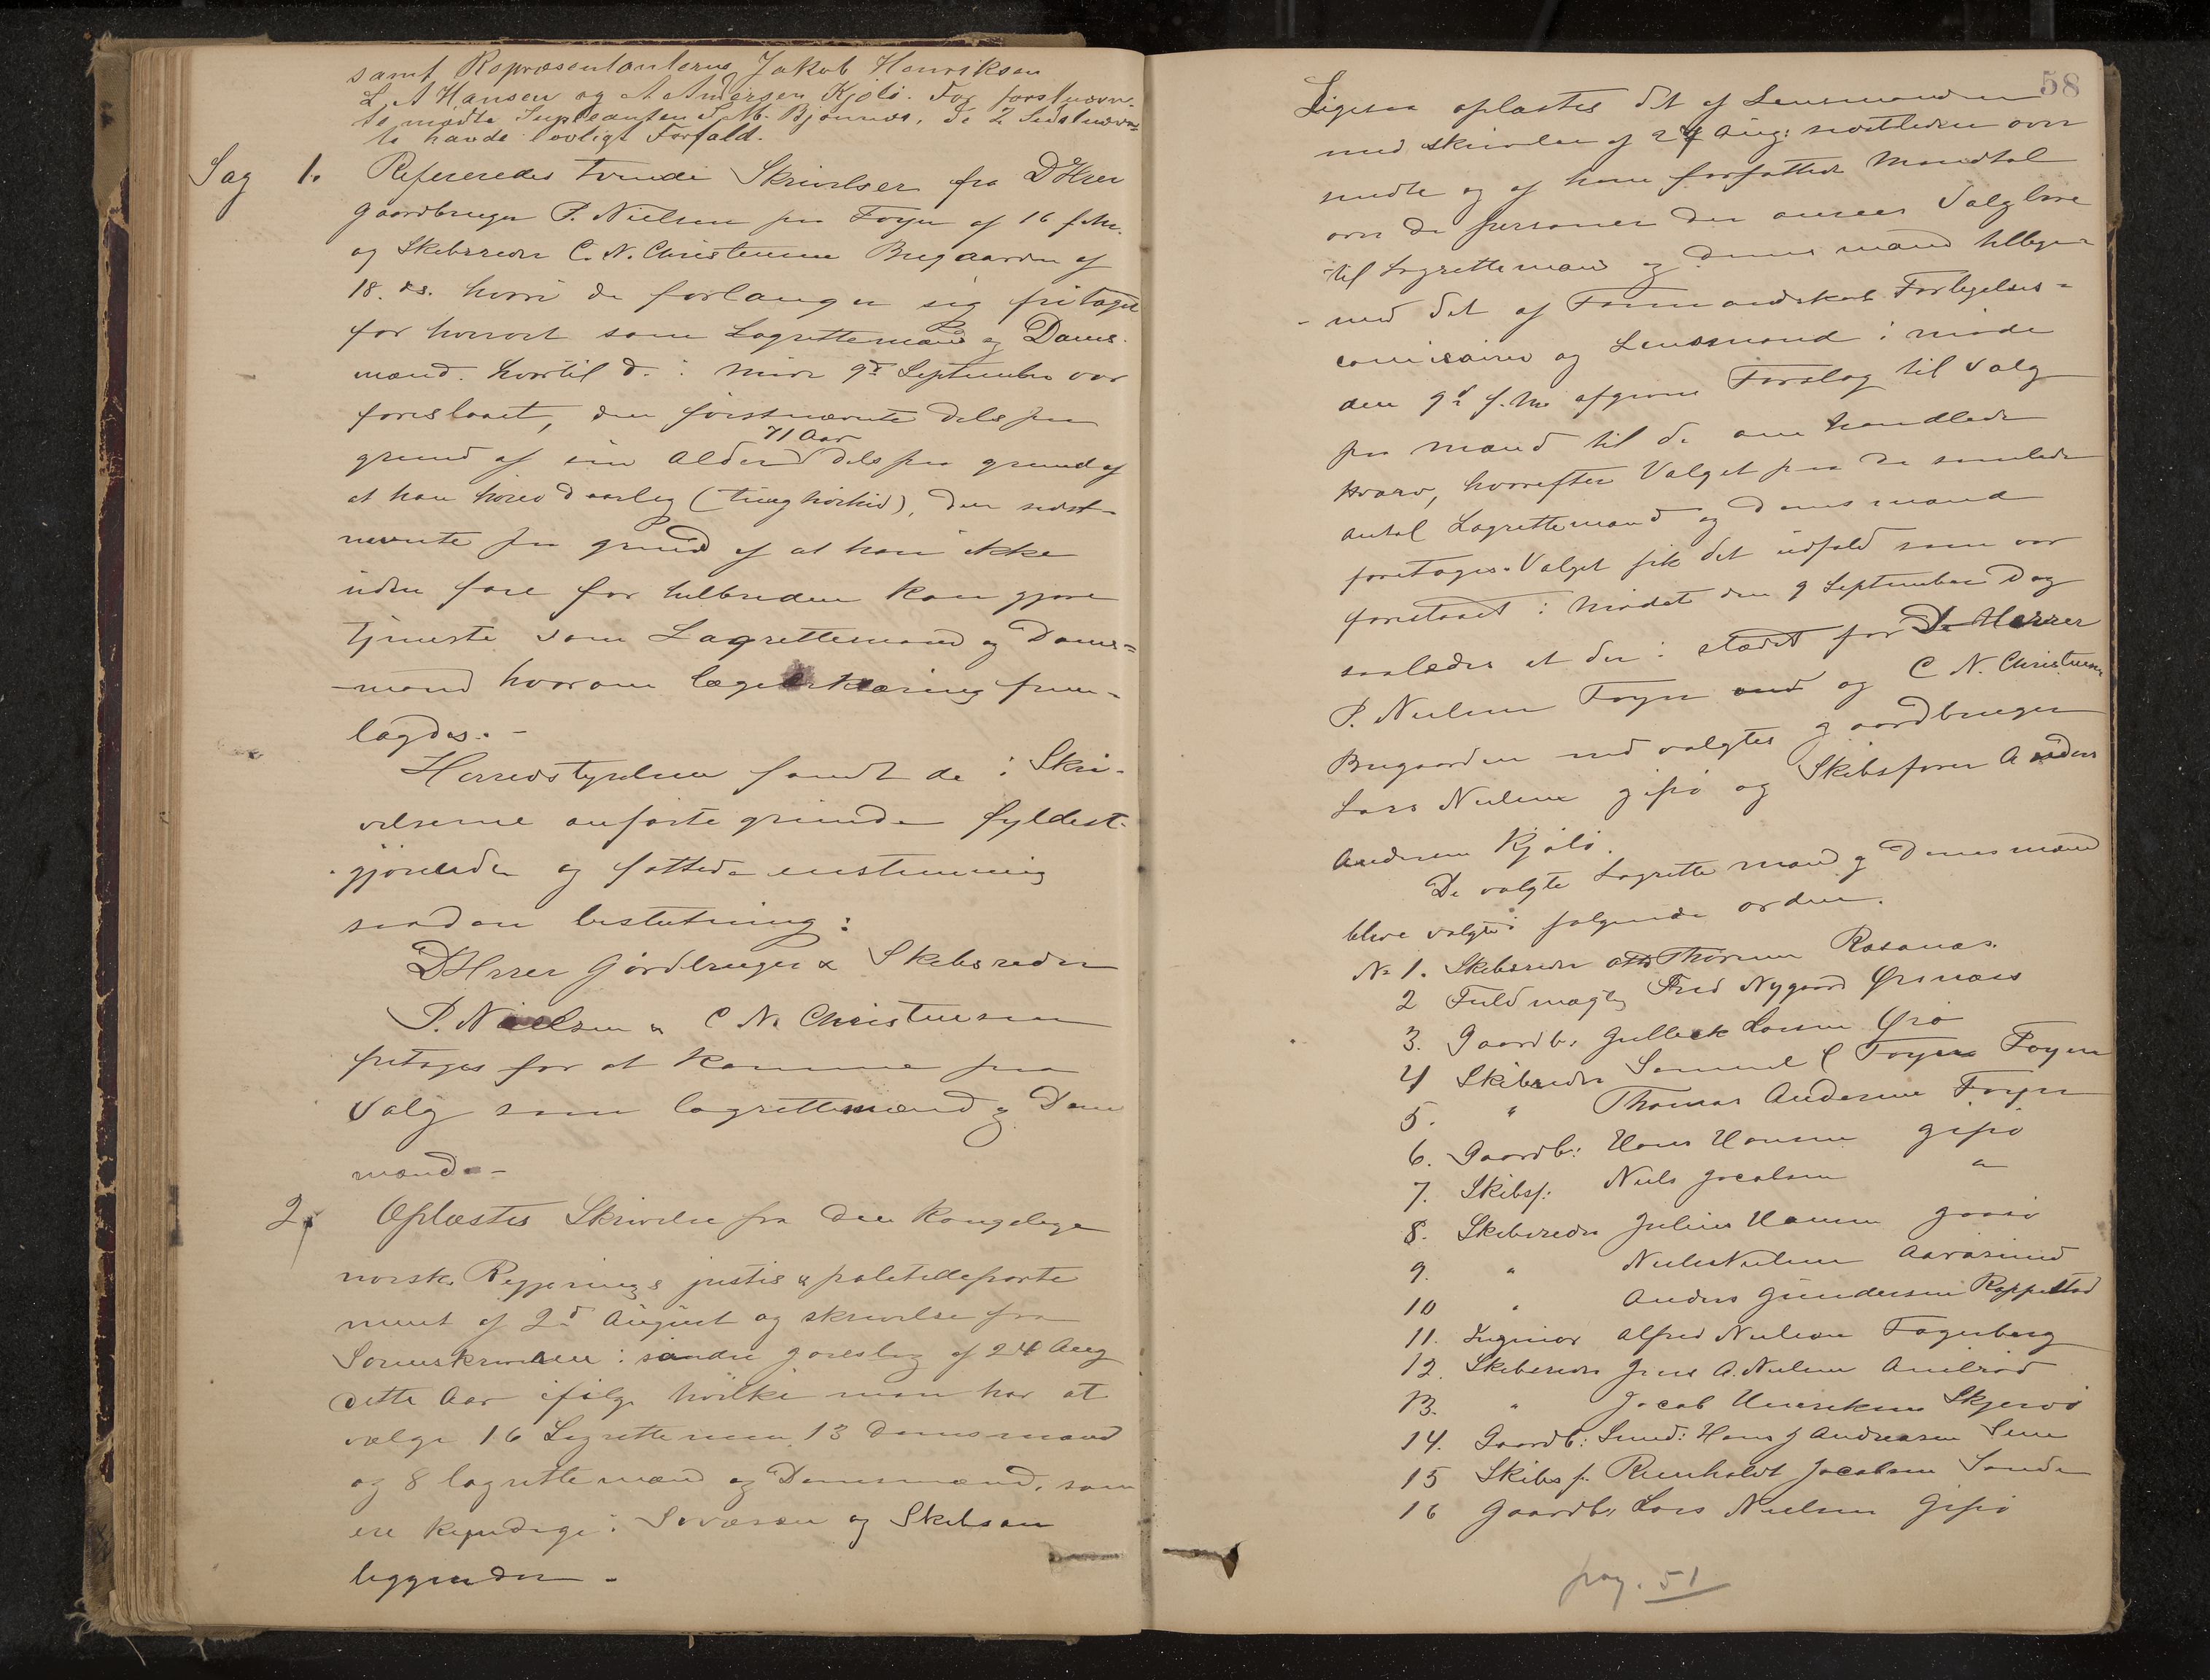 samt Repræsentanterne Jakob Henriksen
L. A Hansen og A Andersen Kjølø. For førstnævn-
te mødte Supleanten S. M. Bjønnes, de 2 sidstnævn-
te havde lovligt Forfald.
Sag 1. Refereredes tvende Skrivelser fra DHrer
gaardbruger P. Nielsen paa Føyen af 16 f. M.
og Skibsreder C. N. Christensen Brygaarden af
18. ds. hvori de forlanger sig fritaget
for hvervet som Lagrettemand og Doms-
mænd. hvortil d. i møde 9de September var
foreslaaet, den førstnævnte dels paa
grund af sin Alder 71 Aar dels paa grund af
at han hører daarlig (tunghørhed), den sidst-
nævnte paa grund af at han ikke
uden fare for helbreden kan gjøre
tjeneste som Lagrettemand og Doms=
mand hvorom lægeerklæring frem-
lagdes. -
Herredstyrelsen fandt de i Skri-
velserne anførte grunde fyldest-
gjørende og fattede enstemmig
saadan beslutning:
DHrrer Gårdbruger & Skibsreder
P. Nielsen & C N. Christensen
fritages for at komme paa
Valg som lagrettemænd og Doms
mænd. -
2. Oplæstes Skrivelse fra den Kongelige
norske Regjerings justis & politideparte
ment af 2d August og skrivelse fra
Sorenskriveren i søndre Jarlsberg af 24 Aug
dette Aar ifølge hvilke man har at
vælge 16 Lagrettemen, 13 Domsmænd
og 8 lagrettemænd og Domsmænd, som
ere kyndige i Søvæsen og Skibsan
liggender -
58
Ligesaa oplæstes det af Lensmanden
med skrivelse af 24 Aug: sidstleden over
sendte og af ham forfattede Mandtal
over de personer der ansees Valgbare
til Lagrettemænd og Domsmænd tillige-
- med det af Formandskab Forligelses-
comisairer og Lensmand i møde
den 9d f. M. afgivne Forslag til Valg
paa mænd til de omhandlede
hværv, hvorefter Valget paa de samlede
antal Lagrettemænd og domsmænd
foretoges. Valget fik det udfald som var
foreslaaet i Mødet den 9 September dog
saaledes at der i stedet for De Herrer
P. Nielsen Føyn og C N. Christensen
Brygaarden valgtes gaardbruger
Lars Nielsen Gipø og Skibsfører Anders
Andersen Kjølø.
De valgte Lagrettemænd og Domsmænd
bleve valgte i følgende orden.
No 1. Skibsreder Otto Thoresen Rosanæs.
2 Fuldmægtig Fred Nygaard Ørsnæs
3. Gaardb: Gulleck Larsen Ørø
4 Skibsreder Samuel C Foyen Foyen
5. " Thomas Andersen Foyn
6. Gaardb: Hans Hansen Gipø
7. Skibsf: Niels Jacobsen "
8. Skibsreder Julius Hansen Gaasø
9. " Niels Nielsen Aarøsund
10 " Anders Gundersen Roppestad
11. Ingeniør Alfred Nielsen Fagerberg
12. Skibsreder Jens A. Nielsen Arilsrød
13. " Jacob Henriksen Skjervø
14. Gaardb: Hans J Andreasen Sem
15 Skibsf: Reinholdt Jacobsen Sande
16 Gaardb: Lars Nielsen Gipø
pag. 51